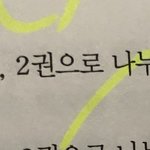 , 2권으로 나누